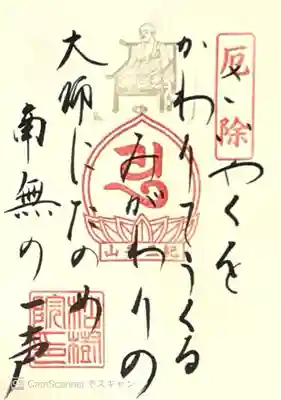 厄除
やくを
かわりてうくる
みがわりの
大師にたのめ
南無の一声
CamScanner でスキャン